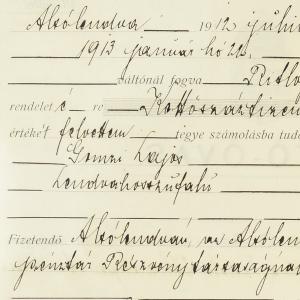 Alsólendva 1912 julius
1913 január hó 22.
váltónál fogva
rendelet é re Kettőszáztizen
értéke't felvettem tegye számolásba tud
Gomzi Lajos
Lendvahosszufalú
Fizetendő Alsólendván, az Alsólen
pénztár Részvénytársaságnál